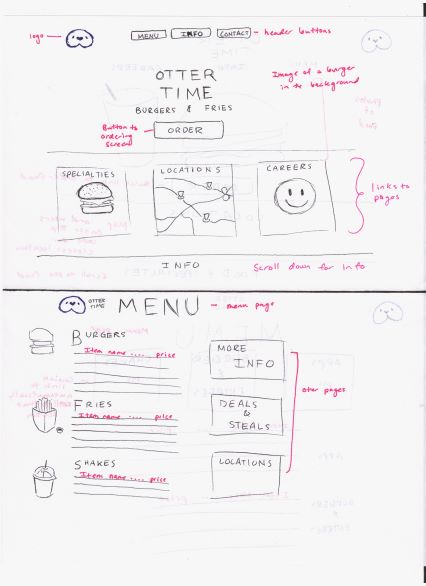 logo
MENU
INFO
CONTACT
header buttons
OTTER
TIME
BURGERS & FRIES
Image of a burger
in the background
Button to
ordering
screen
ORDER
SPECIALTIES
LOCATIONS
CAREERS
links to
pages
INFO
Scroll down for info
OTTER
TIME
MENU
menu page
BURGERS
Item name .... price
FRIES
Item name .... price
SHAKES
Item name .... price
MORE
INFO
DEALS
&
STEALS
LOCATIONS
oter pages